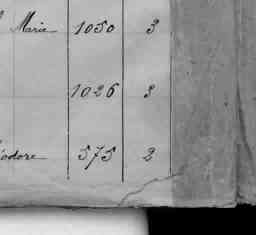 Marie 1050 3
1026 3
odore 575 2